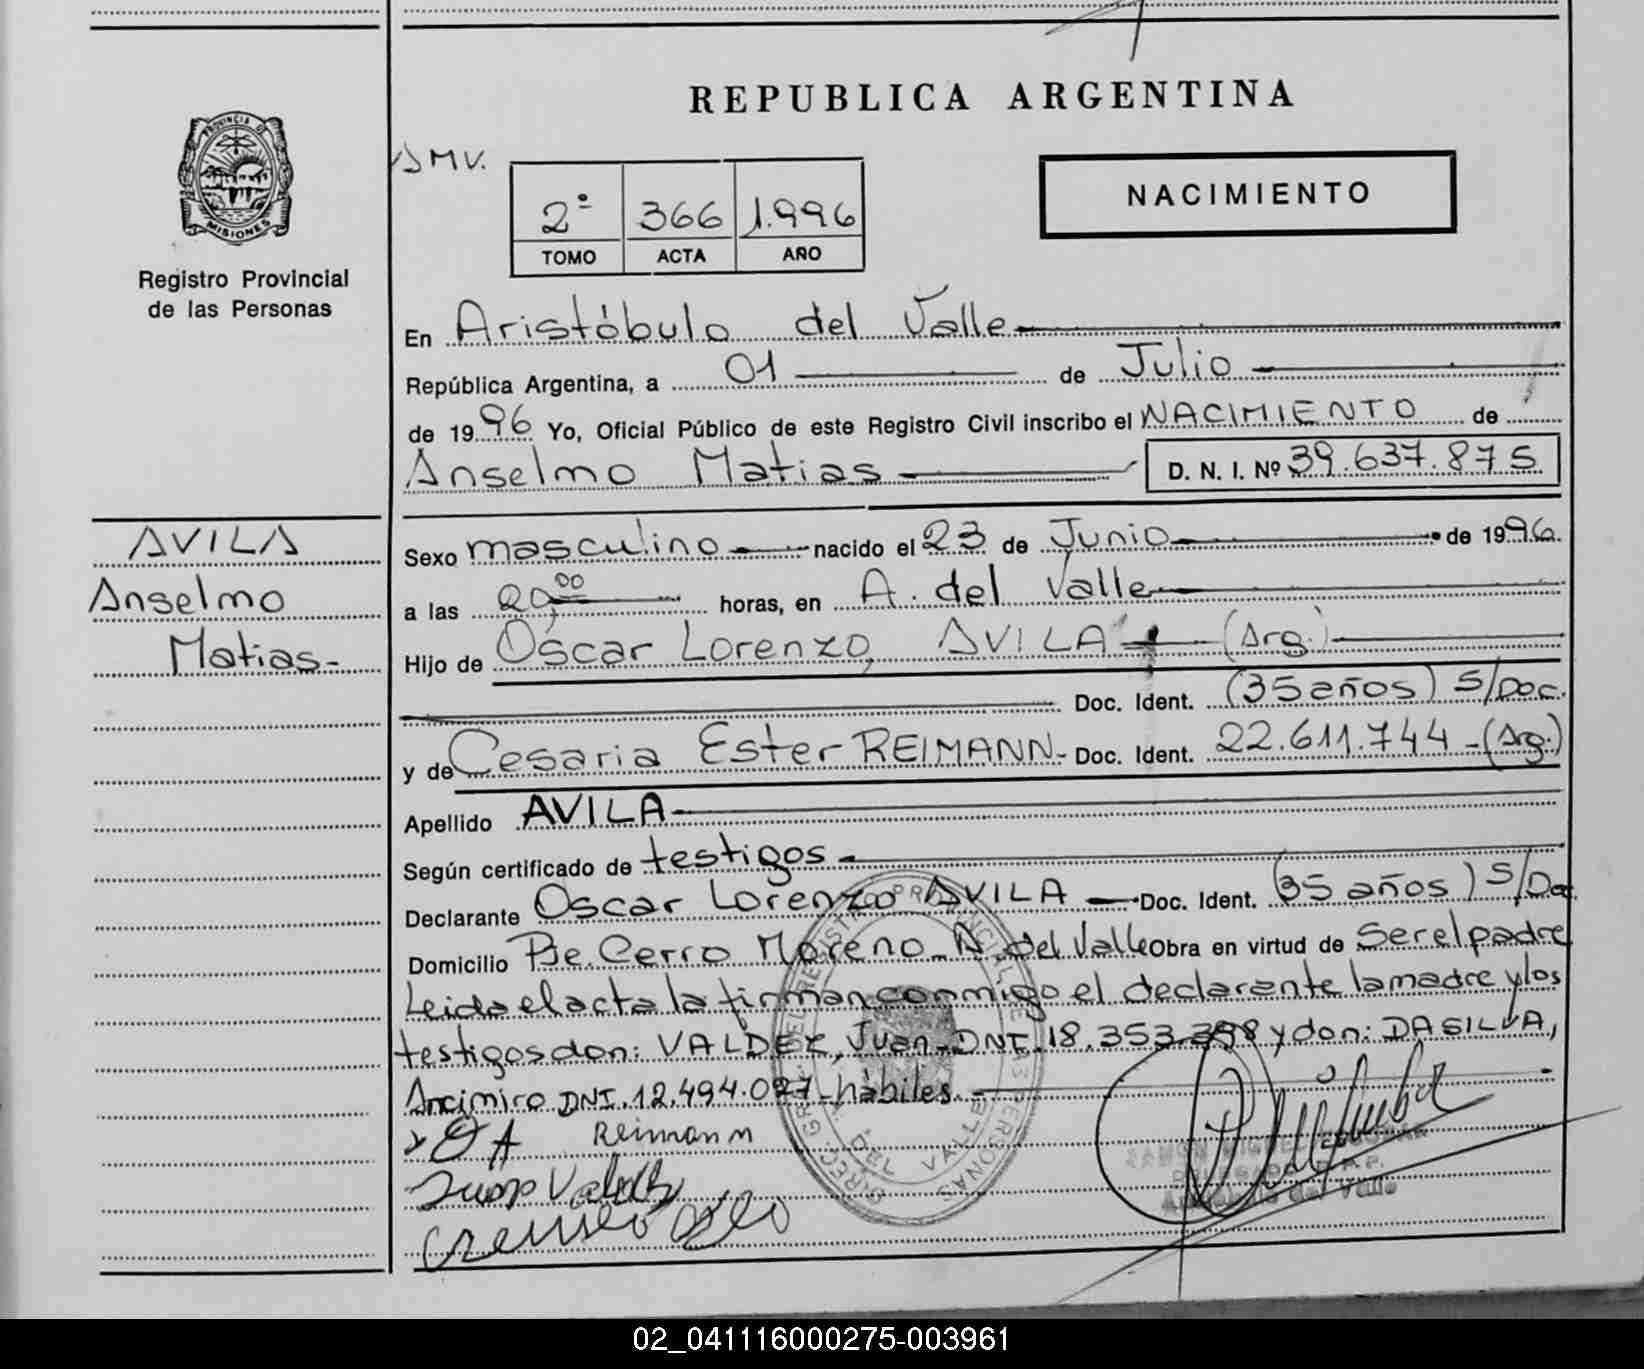 REPUBLICA ARGENTINA
PROVINCIA DE
MISIONES
Registro Provincial
de las Personas
SMV.
2º 366 1.996
TOMO ACTA AÑO
NACIMIENTO
En Aristóbulo del Valle
República Argentina, a 01 de Julio
de 1996 Yo, Oficial Público de este Registro Civil inscribo el NACIMIENTO de
Anselmo Matias D. N. I. Nº 39.637.875
AVILA
Anselmo
Matias-
Sexo masculino nacido el 23 de Junio de 1996.
a las 20,00 horas, en A. del Valle
Hijo de Oscar Lorenzo, AVILA (Arg.)
Doc. Ident. (35 años) S/Doc.
y de Cesaria Ester REIMANN- Doc. Ident. 22.611.744-(Arg.)
Apellido AVILA
Según certificado de testigos
Declarante Oscar Lorenzo AVILA Doc. Ident. (35 años) S/Doc
Domicilio Pje. Cerro Moreno- A. del Valle Obra en virtud de Ser el padre
Leida el acta la firman conmigo el declarante la madre y los
testigos don: VALDEZ, Juan-DNI.18.353.398 y don: DASILVA,
Arcimiro DNI.12.494.027-hábiles.-
O A Reimann
Juan
DEL VALLE
Aristóbulo del Valle
02_041116000275-003961